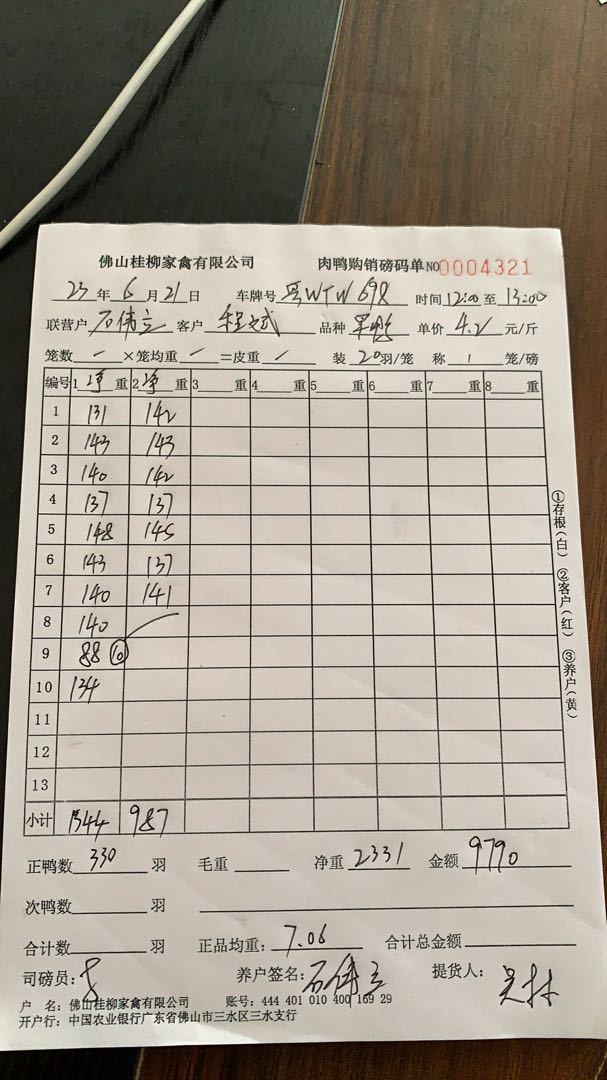 佛山桂柳家禽有限公司 肉鸭购销磅码单 NO 0004321
23 年 6 月 21 日 车牌号 粤WTW698 时间 12:00 至 13:00
联营户 石伟立 客户 程文斌 品种 单价 4.2 元/斤
笼数 — ×笼均重 — =皮重 / 装 20 羽/笼 称 1 笼/磅
编号 1 净 重 2 净 重 3 重 4 重 5 重 6 重 7 重 8 重
1 131 142
2 143 143
3 140 142
4 137 137
5 148 145
6 143 137
7 140 141
8 140
9 88 ⑩
10 134
11
12
13
小计 1344 987
①存根(白) ②客户(红) ③养户(黄)
正鸭数 330 羽 毛重 净重 2331 金额 9790
次鸭数 羽
合计数 羽 正品均重: 7.06 合计总金额
司磅员: 养户签名: 石伟立 提货人:
户 名: 佛山桂柳家禽有限公司 账号: 444 401 010 400 169 29
开户行: 中国农业银行广东省佛山市三水区三水支行